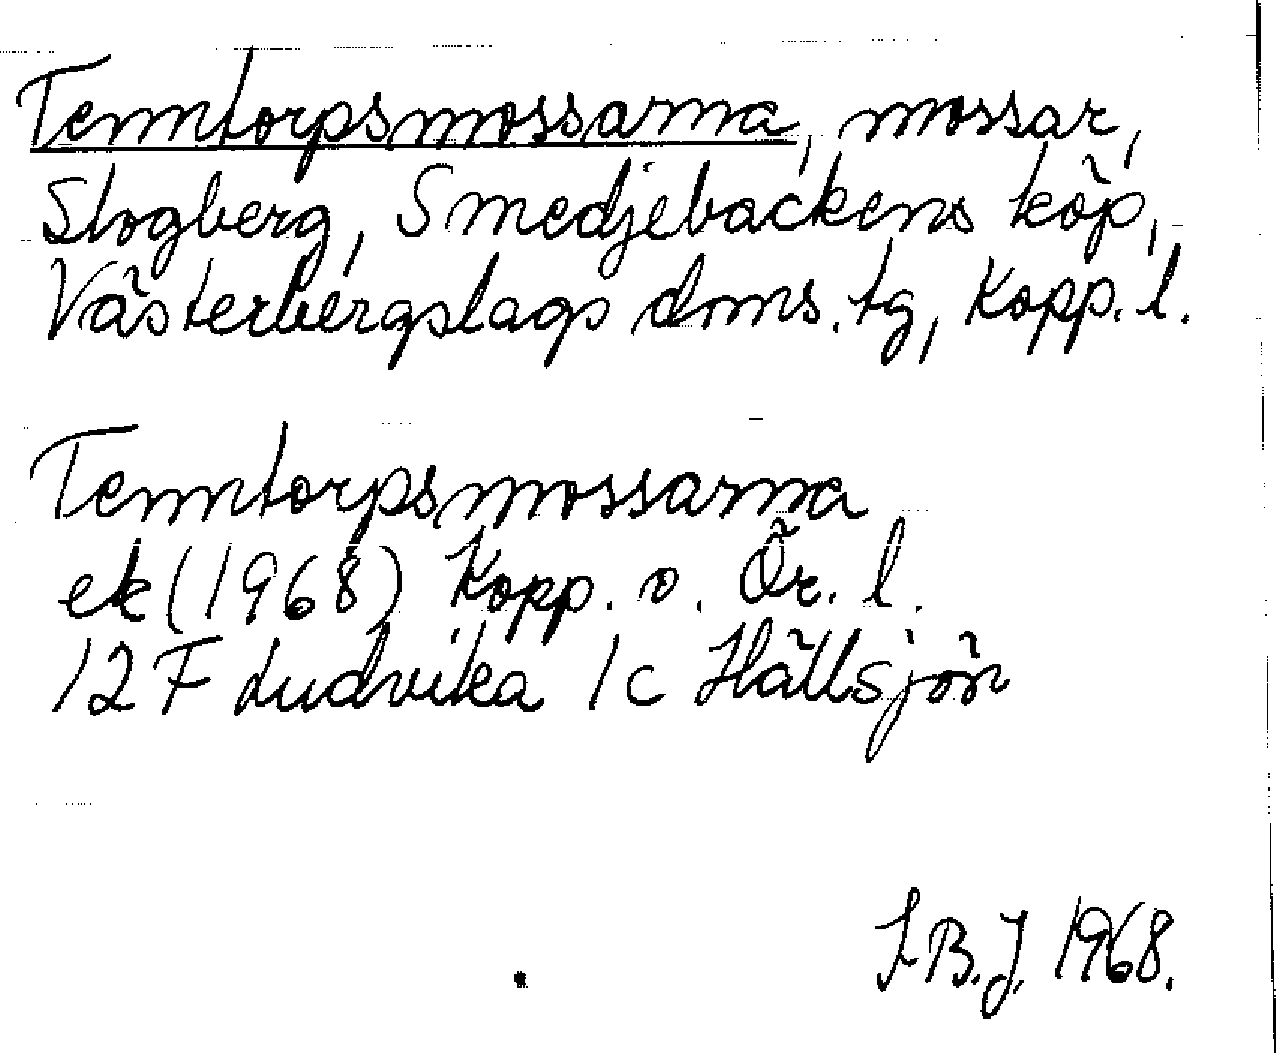 Tenntorpsmossarna, mossar,
Slogberg, Smedjebackens köp,
Västerbergslags doms. tg, Kopp. l.
Tenntorpsmossarna
ek (1968) Kopp. o. Ör. l.
12 F Ludvika 1c Hällsjön
F.B.J. 1968.